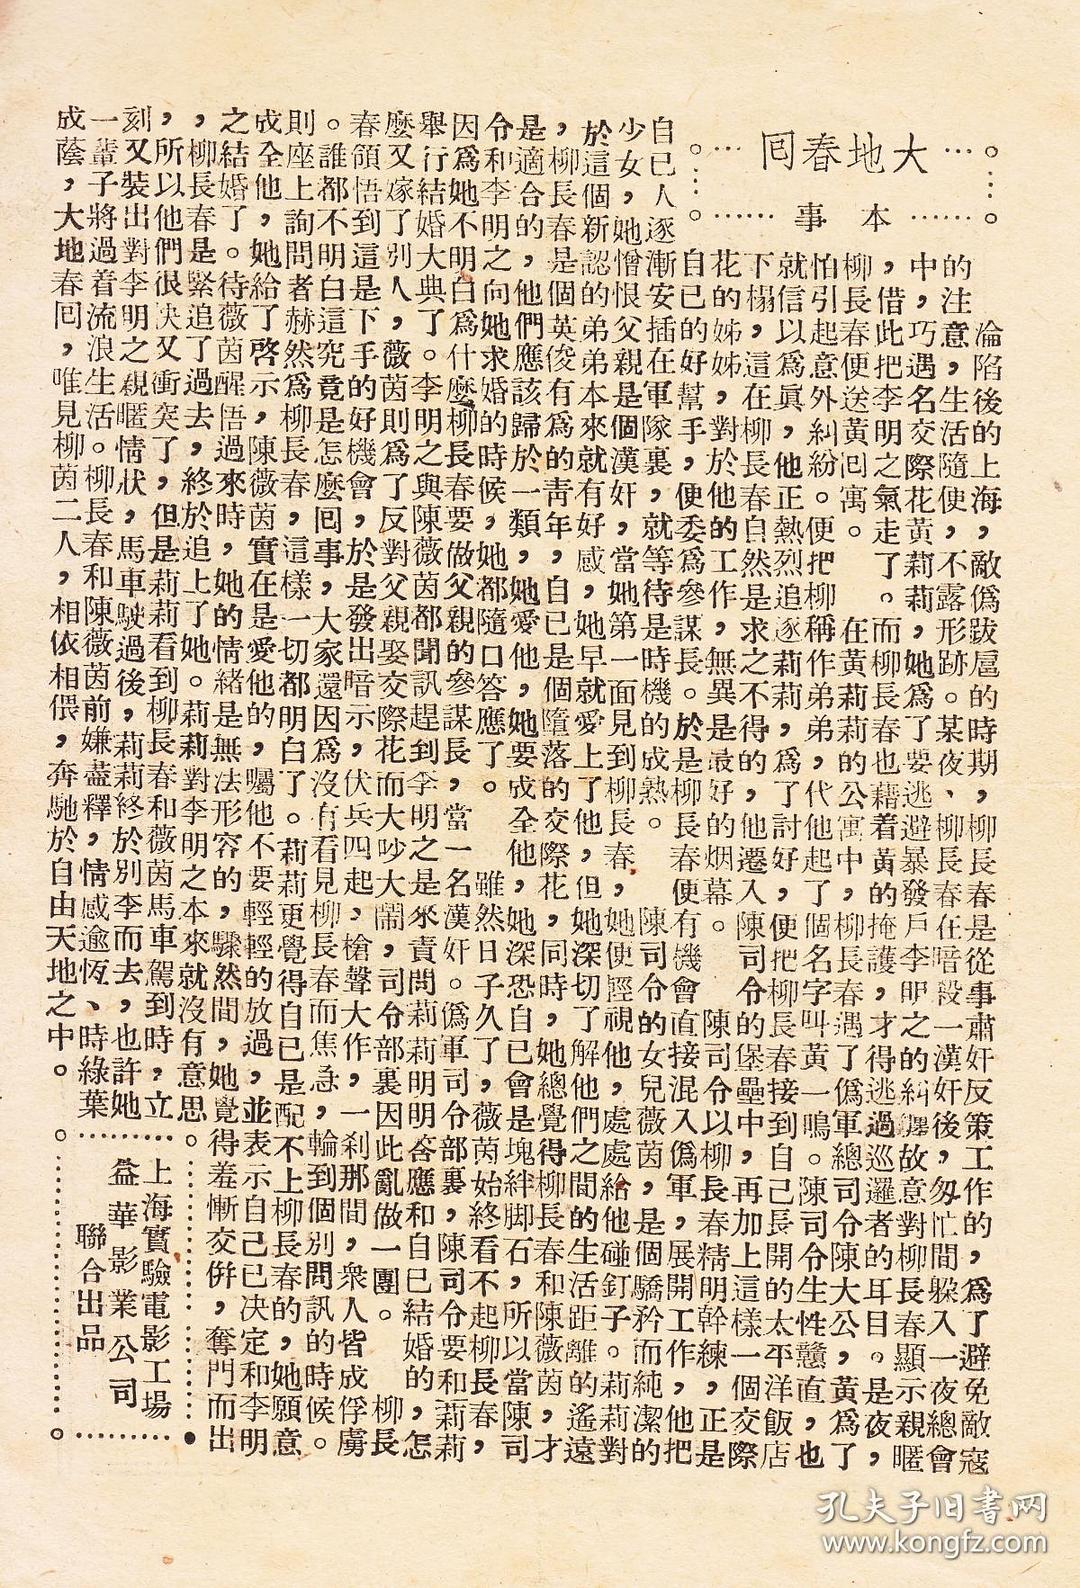 大地春囘
本事
淪陷後的上海，敵偽跋扈的時期，柳長春是從事肅奸反策工作的，為了避免敵寇
的注意，生活隨便，不露形跡。某夜、柳長春在暗殺一漢奸後，匆忙間躲入一夜總會
中，巧遇名交際花黃莉莉，她為了要逃避暴發戶李明之的糾纏故意對柳長春顯示親暱
，借此把李明之氣走了。而柳長春也藉着黃的掩護，才得逃過巡邏者的耳目。是夜，
柳長春便送黃囘寓。　在黃莉莉的公寓中，柳長春遇了偽軍總司令陳大公，黃為了
怕引起意外糾紛。便把柳稱作弟弟，代他起了個名字叫黃一鳴。陳司令生性戇直，也
就信以為眞，他正熱烈追逐莉莉，為了討好，便把柳長春接到自己長開的太平洋飯店
下榻，這在柳長春自然是求之不得的，他遷入陳司令的堡壘中，再加上這樣一個交際
花的姊姊，對於他的工作，無異是最好的烟幕。　陳司令以柳長春精明幹練，正是
自已的好幫手，便委為參謀長。於是柳長春便有機會直接混入偽軍，展開工作，他把
自已人逐漸安插在軍隊裏，就等待是時機的成熟。　陳司令的女兒薇茵，是個驕矜而純潔的
少女，她憎恨父親是個漢奸，當她第一面見到柳長春，她便逕視他，處處給他碰釘子。莉莉對
於這個新認的弟弟本來就有好感，她早就愛上了他，但她深切了解他們之間的生活距離的遙遠
，柳長春是個英俊有為的青年，自已是個墮落的交際花，同時，她總覺得柳長春和陳薇茵，才
是適合的，他們應該歸於一類，她愛他，她要成全他，她深恐自已會是塊絆脚石，所以當陳司
令和李明之向她求婚的時候，她都隨口答應了。　雖然日子久了，薇茵始終看不起柳長春，
因為她不明白為什麼柳長春要做父親的參謀長，當一名漢奸。偽軍司令部裏，陳司令要和莉莉
舉行結婚大典了。李明之與陳薇茵都聞訊趕到李明之是來責問莉莉明明答應和自已結婚的怎
麼又嫁了別人，薇茵則為了反對父親娶交際花而大吵大鬧，司令部裏因此亂做一團。　柳長
春領悟到這是下手的好機會，於是發出暗示，伏兵四起，槍聲大作，一刹那間，衆人皆成俘虜
。誰都不明白這究竟是怎麼囘事，大家還因為沒有看見柳長春而焦急，輪到個別問訊的時候。
則座上詢問者赫然為柳長春，這樣一切都明白了。莉莉更覺得自已是配不上柳長春的，她願意
成全他，她給了啓示，陳薇茵實在是愛他的，囑他不要輕輕的放過，並表示自己已决定和李明
之結婚了。待薇茵醒悟過來時，她的情緒是無法形容的，驟然間，她覺得羞慚交併，奪門而出
，柳長春是緊追了過去，終於追上了她。莉莉對李明之本來就沒有意思。
，所以他們很决又衝突了，但是莉莉看到柳長春和薇茵馬車駕到時，立
刻又裝出對李明之親暱情狀，馬車駛過後，莉莉終於別李而去，也許她
一輩子將過着流浪生活。柳長春和陳薇茵前嫌盡釋，情感逾恆、時綠葉
成蔭，大地春囘，唯見柳茵二人，相依相偎，奔馳於自由天地之中。
上海實驗電影工場
益華影業公司
聯合出品
孔夫子旧书网
www.kongfz.com